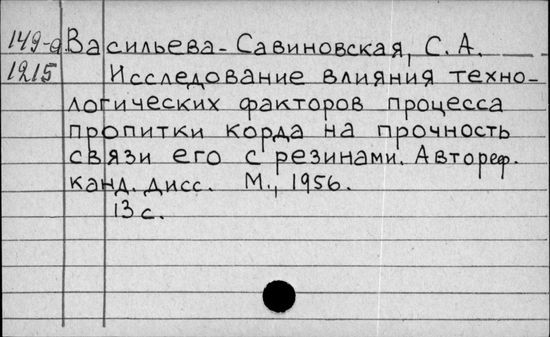 149-д Васильева-Савиновская, С. А.
1215 Исследование влияния техно-
логических факторов процесса
пропитки корда на прочность
связи его с резинами. Автореф.
канд. дисс. М., 1956.
13 с.